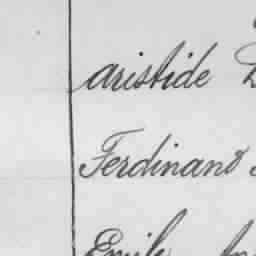 aristide
Ferdinand
Emile